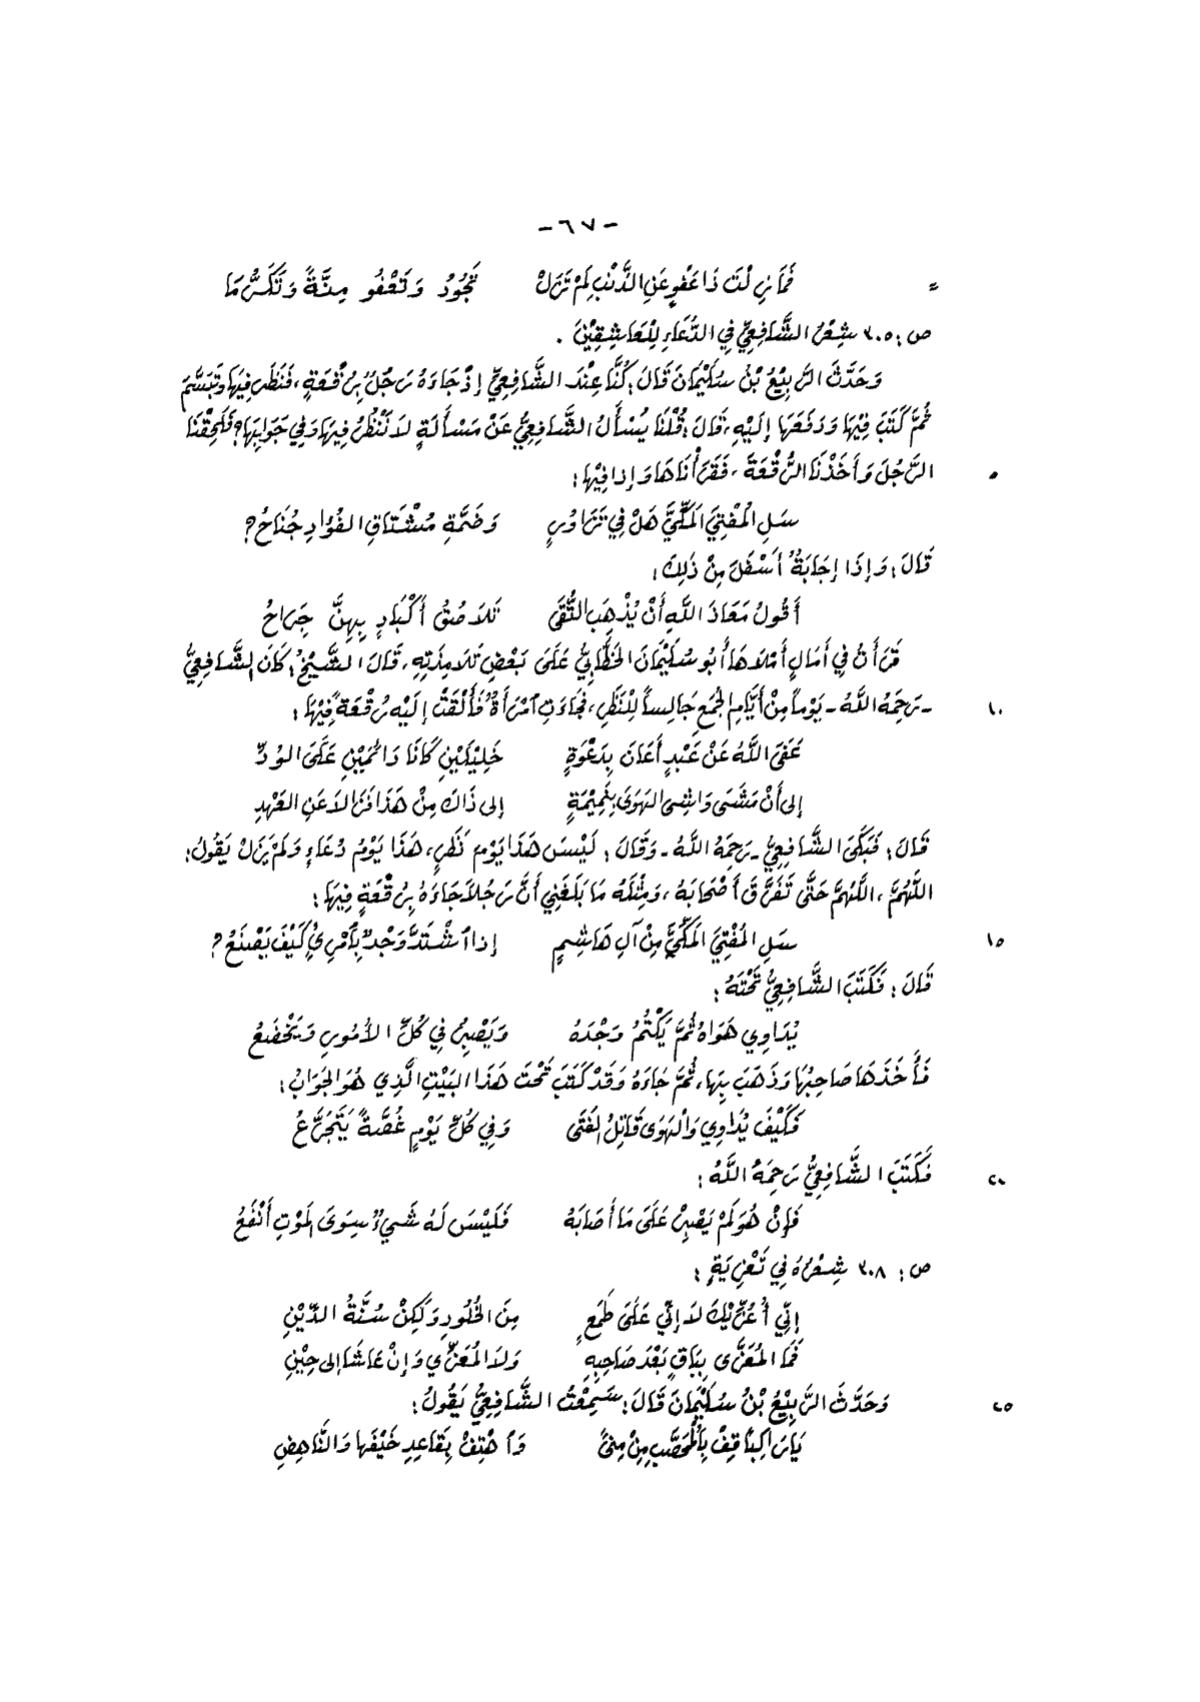 -٦٧-
= فَمَا زِلْتَ ذَا عَفْوٍ عَنِ الذَّنْبِ لَمْ تَزَلْ تَجُودُ وَتَعْفُو مِنَّةً وَتَكَرُّمَا
ص: ٣٠٥ شِعْرُ الشَّافِعِيِّ فِي الدُّعَاءِ لِلْعَاشِقِيْنَ .
وَحَدَّثَ الرَّبِيْعُ بْنُ سُلَيْمَانَ قَالَ: كُنَّا عِنْدَ الشَّافِعِيِّ إِذْ جَاءَهُ رَجُلٌ بِرُقْعَةٍ، فَنَظَرَ فِيْهَا وَتَبَسَّمَ
ثُمَّ كَتَبَ فِيْهَا وَدَفَعَهَا إِلَيْهِ، قَالَ: قُلْنَا يُسْأَلُ الشَّافِعِيُّ عَنْ مَسْأَلَةٍ لَا نَنْظُرُ فِيهَا وَفِي جَوَابِهَا؟ فَلَحِقْنَا
٥ الرَّجُلَ وَأَخَذْنَا الرُّقْعَةَ، فَقَرَأْنَاهَا وَإِذا فِيْهَا:
سَلِ الْمُفْتِيَ الَمَكِّيَّ هَلْ فِي تَزَاوُرٍ وَضَمَّةِ مُشْتَاقِ الفُؤَادِ جُنَاحُ؟
قَالَ: وَإِذَا إِجَابَةٌ أَسْفَلَ مِنْ ذَلِكَ:
أَقُولُ مَعَاذَ اللَّهِ أَنْ يُذْهَبَ التُّقَى تَلَاصُقُ أَكْبَادٍ بِهِنَّ جِرَاحُ
قَرَأْتُ فِي أَمَالٍ أَمْلَاهَا أَبُو سُلَيْمَانَ الخَطَّابِيُّ عَلَى بَعْضِ تَلَامِذَتِهِ، قَالَ الشَّيْخُ: كَانَ الشَّافِعِيُّ
١٠ - رَحِمَهُ اللَّهُ - يَوْماً مِنْ أَيَّامِ الجُمَعِ جَالِساً لِلْنَظَرِ، فَجَاءَتِ ٱمْرَأَةٌ فَأَلْقَتْ إِلَيْهِ رُقْعَةً فِيْهَا:
عَفَى اللَّهُ عَنْ عَبْدٍ أَعَانَ بِدَعْوَةٍ خَلِيْلَيْنِ كَانَا دَائِمَيْنِ عَلَى الوُدِّ
إِلى أَنْ مَشَى وَاشِى الهَوَى بِنَمِيْمَةٍ إِلى ذَاكَ مِنْ هَذَا فَزَالَا عَنِ العَهْدِ
قَالَ: فَبَكَى الشَّافِعِيُّ - رَحِمَهُ اللَّهُ - وَقَالَ: لَيْسَ هَذَا يَوْمَ نَظَرٍ، هَذَا يَوْمُ دُعَاءٍ وَلَمْ يَزَلْ يَقُولُ:
اللَّهُمَّ، اللَّهُمَّ حَتَّى تَفَرَّقَ أَصْحَابَهُ، وَمِثْلَهُ مَا بَلَغَنِي أَنَّ رَجُلاً جَاءَهُ بِرُقْعَةٍ فِيهَا:
١٥ سَلِ المُفْتِيَ المَكِّيَّ مِنْ آلِ هَاشِمٍ إِذا ٱشْتَدَّ وَجْدٌ بِٱمْرِىءٍ كَيْفَ يَصْنَعُ؟
قَالَ: فَكَتَبَ الشَّافِعِيُّ تَحْتَهُ:
يُدَاوِي هَوَاهُ ثُمَّ يَكْتُمُ وَجْدَهُ وَيَصْبِرُ فِي كُلِّ الأُمُورِ وَيَخْضَعُ
فَأَخَذَهَا صَاحِبُهَا وَذَهَبَ بِهَا، ثُمَّ جَاءَهُ وَقَدْ كَتَبَ تَحْتَ هَذَا البَيْتِ الَّذِي هُوَ الجَوَابُ:
فَكَيْفَ يُدَاوِي وَالْهَوَى قَاتِلُ الفَتَى وَفِي كُلِّ يَوْمٍ غُصَّةً يَتَجَرَّعُ
٢٠ فَكَتَبَ الشَّافِعِيُّ رَحِمَهُ اللَّهُ:
فَإِنْ هُوَ لَمْ يَصْبِرْ عَلَى مَا أَصَابَهُ فَلَيْسَ لَهُ شَيءٌ سِوَى المَوْتِ أَنْفَعُ
ص: ٣٠٨ شِعْرُهُ فِي تَعْزِيَةٍ:
إِنِّي أُعَزِّيْكَ لَا إِنِّي عَلَى طَمَعٍ مِنَ الخُلُودِ وَلَكِنْ سُنَّةُ الدِّيْنِ
فَمَا المُعَزَّى بِبَاقٍ بَعْدَ صَاحِبِهِ وَلَا المُعَزِّي وَإِنْ عَاشَا إِلى حِيْنِ
٢٥ وَحَدَّثَ الرَّبِيْعُ بْنُ سُلَيْمَانَ قَالَ: سَمِعْتُ الشَّافِعِيَّ يَقُولُ:
يَا رَاكِباً قِفْ بِالْمُحَصَّبِ مِنْ مِنىً وَٱهْتِفْ بِقَاعِدِ خَيْفَهَا وَالنَّاهِضِ